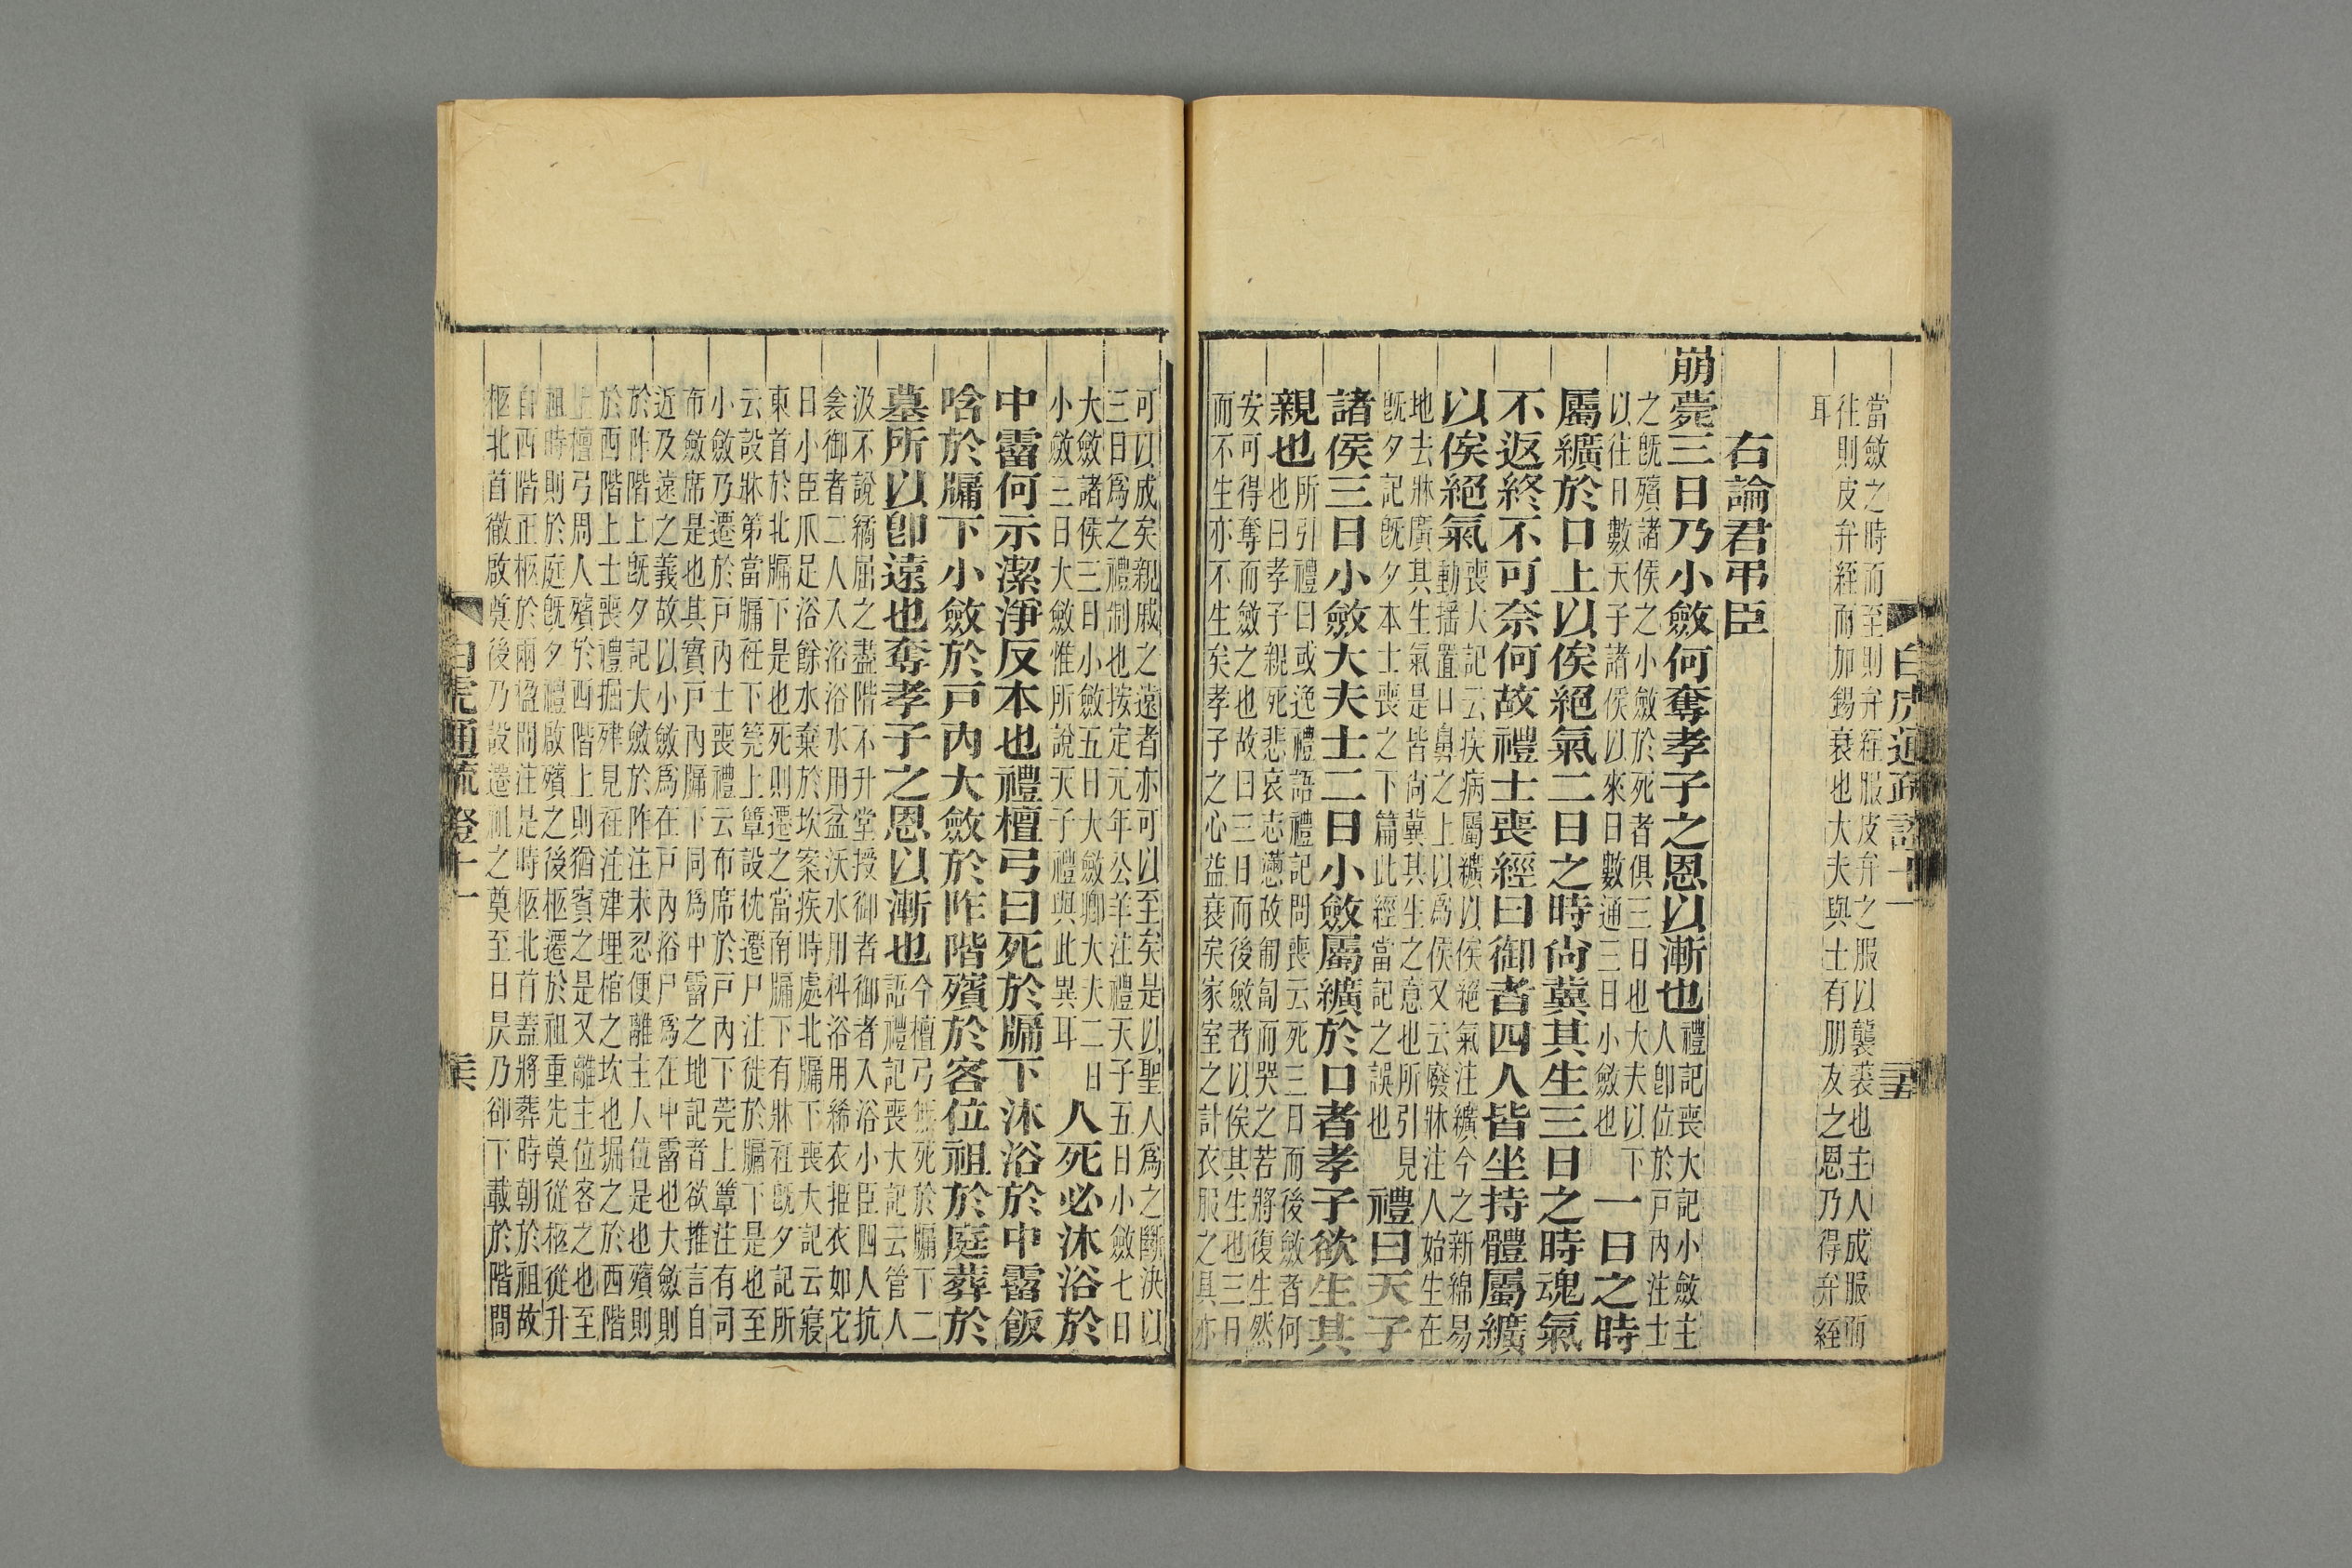 當斂之時而至則弁絰服皮弁之服以襲裘也主人成服而
往則皮弁絰而加錫衰也大夫與士有朋友之恩乃得弁絰
耳
右論君弔臣
崩薨三日乃小斂何奪孝子之恩以漸也
禮記喪大記小斂主
人卽位於戸內注士
之旣殯諸侯之小斂於死者俱三日也大夫以下
以往日數天子諸侯以來日數通三日小斂也
一日之時
屬纊於口上以俟絕氣二日之時尙冀其生三日之時魂氣
不返終不可奈何故禮士喪經曰御者四人皆坐持體屬纊
以俟絕氣
喪大記云疾病屬纊以俟絕氣注纊今之新綿易
動搖置口鼻之上以爲候又云廢牀注人始生在
地去牀廣其生氣是皆尙冀其生之意也所引見
旣夕記旣夕本士喪之下篇此經當記之誤也
禮曰天子
諸侯三日小斂大夫士二日小斂屬纊於口者孝子欲生其
親也
所引禮曰或逸禮語禮記問喪云死三日而後斂者何
也曰孝子親死悲哀志懣故匍匐而哭之若將復生然
安可得奪而斂之也故曰三日而後斂者以俟其生也三日
而不生亦不生矣孝子之心益衰矣家室之計衣服之具亦
可以成矣親戚之遠者亦可以至矣是以聖人爲之斷決以
三日爲之禮制也按定元年公羊注禮天子五日小斂七日
大斂諸侯三日小斂五日大斂卿大夫二日
小斂三日大斂惟所說天子禮與此異耳
人死必沐浴於
中霤何示潔淨反本也禮檀弓曰死於牖下沐浴於中霤飯
唅於牖下小斂於戸內大斂於阼階殯於客位祖於庭葬於
墓所以卽遠也奪孝子之恩以漸也
今檀弓無死於牖下二
語禮記喪大記云管人
汲不說繘屈之盡階不升堂授御者御者入浴小臣四人抗
衾御者二人入浴浴水用盆沃水用枓浴用絺衣挋衣如它
日小臣爪足浴餘水棄於坎案疾時處北牖下喪大記云寢
東首於北牖下是也死則遷之當南牖下有牀衽旣夕記所
云設牀第當牖衽下莞上簟設枕遷尸注徙於牖下是也至
小斂乃遷於戸內士喪禮云布席於戸內下莞上簟注有司
布斂席是也其實戸內牖下同爲中霤之地記者欲推言自
近及遠之義故以小斂爲在戸內浴尸爲在中霤也大斂則
於阼階上旣夕記大斂於阼注未忍便離主人位是也殯則
於西階上士喪禮掘肂見衽注肂埋棺之坎也掘之於西階
上檀弓周人殯於西階上則猶賓之是又離主位客之也至
祖時則於庭旣夕禮啟殯之後柩遷於祖重先奠從柩從升
自西階正柩於兩楹間注是時柩北首蓋將葬時朝於祖故
柩北首徹啟奠後乃設遷祖之奠至日昃乃卻下載於階間
白虎通疏證十一